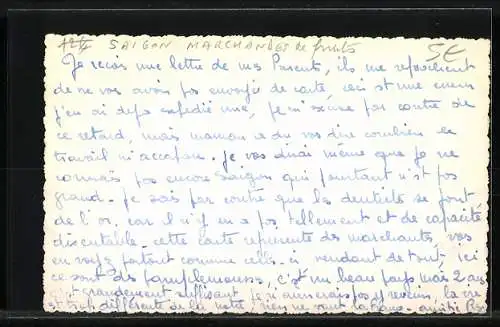 SAIGON MARCHANDES de fruits 5€
Je reçois une lettre de mes Parents, ils me reprochent
de ne vous avoir pas envoyé de carte, ceci est une erreur
j'en ai déjà expédié une, je m'excuse par contre de
ce retard, mais maman a du vous dire combien le
travail m'accapare. Je vous dirai même que je ne
connais pas encore Saigon qui pourtant n'est pas
grand. Je sais par contre que les dentistes se font
de l'or, car il n'y en a pas tellement et de capacité
discutable. cette carte represente des marchants, vous
en voyez partout comme celles-ci vendant de tout, ici
ce sont des pamplemousses, c'est un beau pays mais 2 ans
est grandement suffisant je n'aimerais pas y revenir, la vie
est très différente de la notre, rien ne vaut la France